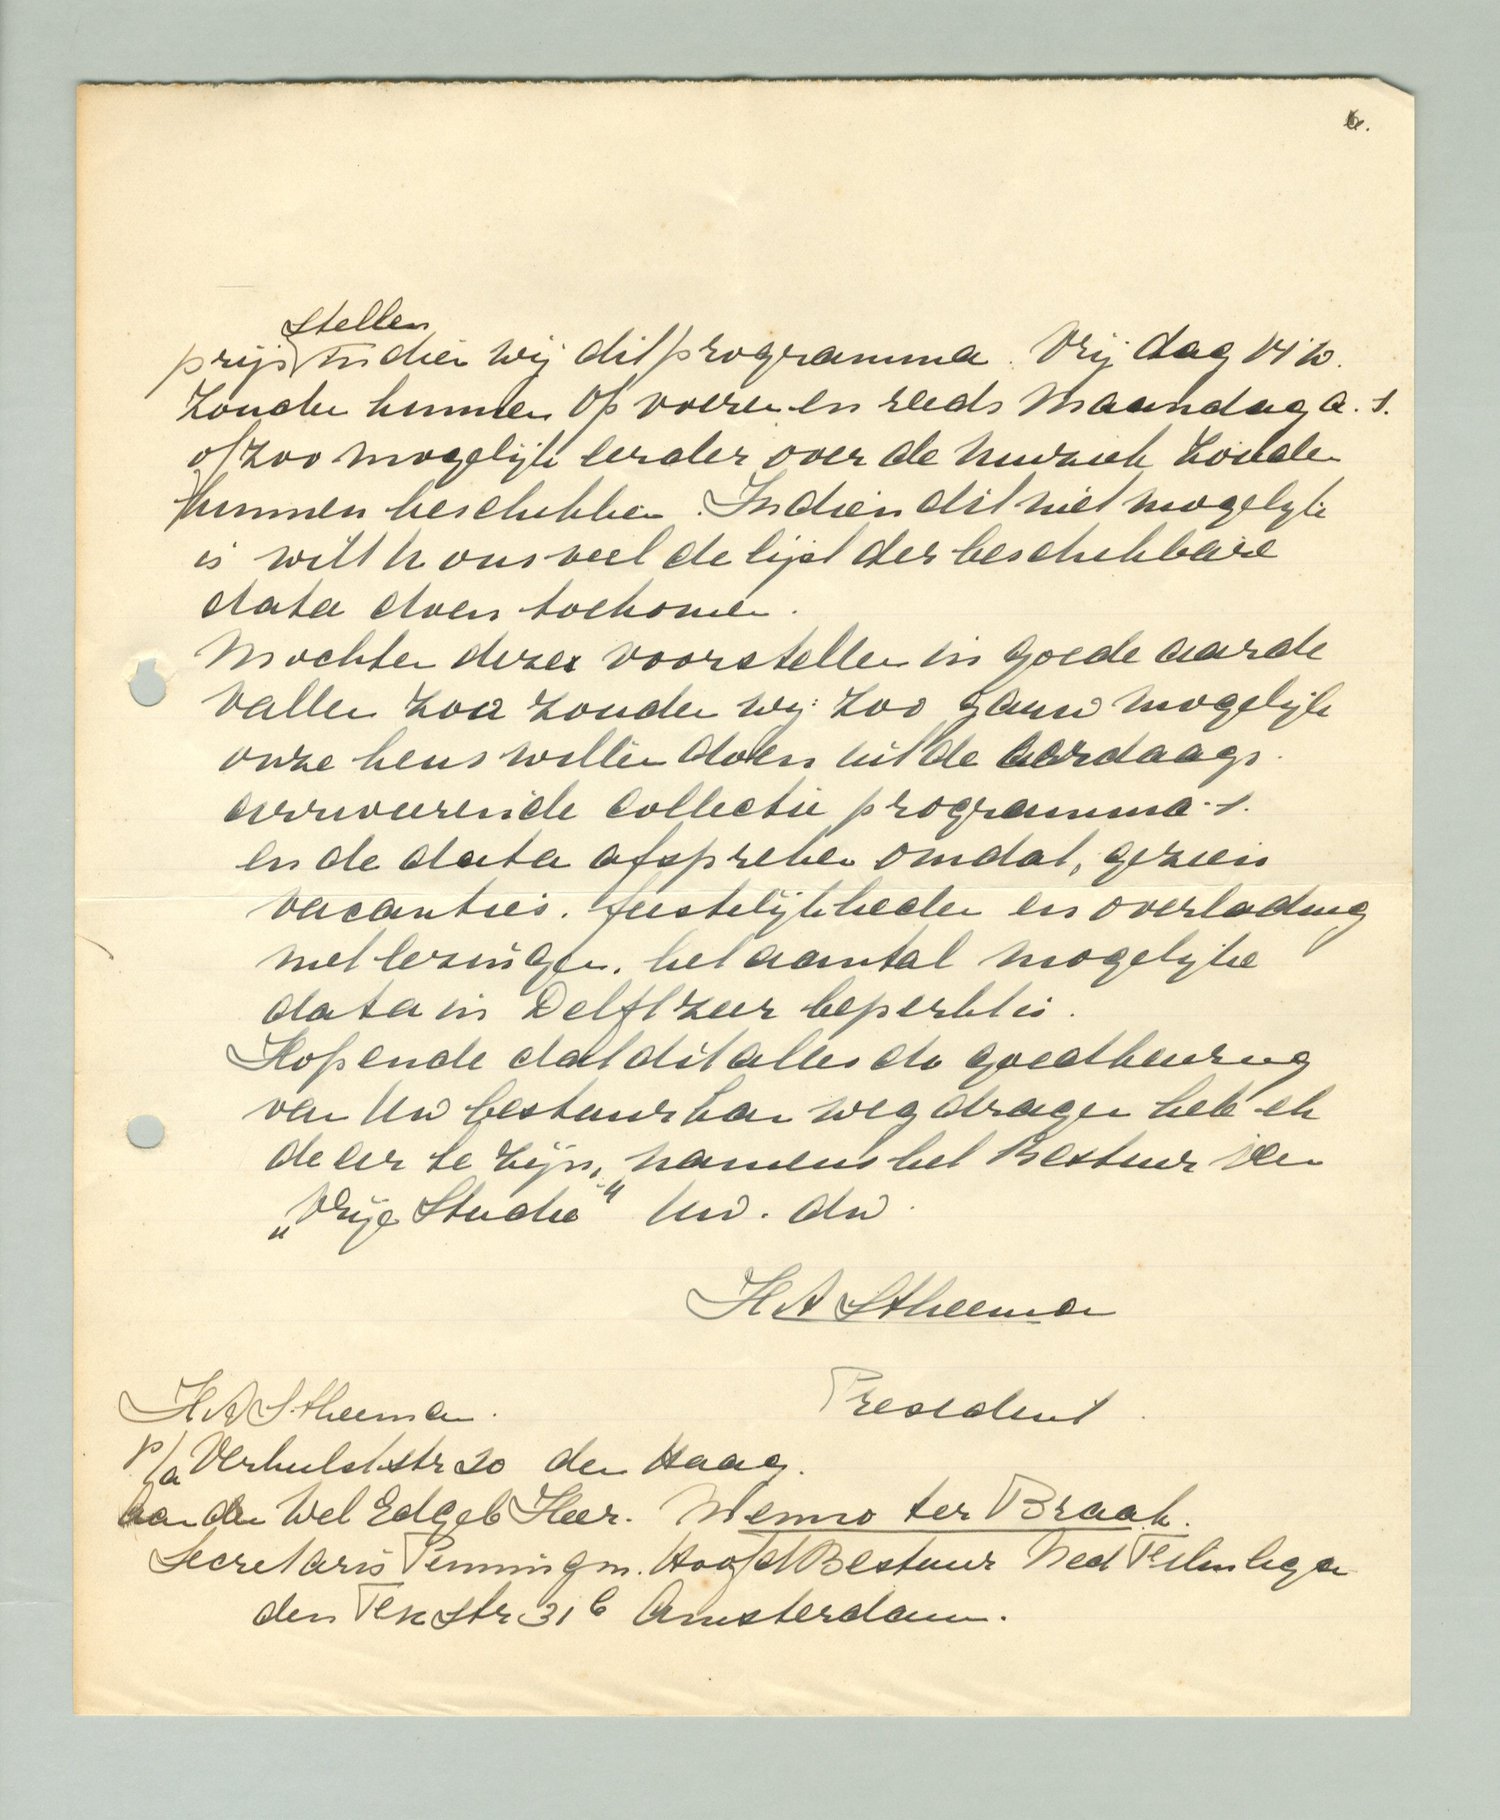 6.
stellen
prijs Indien wij dit programma Vrijdag 14 10.
zouden kunnen opvoeren en reeds Maandag a.s.
of zoo mogelijk eerder over de muziek zouden
kunnen beschikken. Indien dit niet mogelijk
is wilt U ons wel de lijst der beschikbare
data doen toekomen.
Mochten deze voorstellen in goede aarde
vallen zoo zouden wij zoo gauw mogelijk
onze keus willen doen uit de eerdaags
arriveerende collectie programma's.
en de data afspreken omdat, gezien
vacanties. feestelijkheden en overlading
met lezingen, het aantal mogelijke
data in Delft zeer beperkt is.
Hopende dat dit alles de goedkeuring
van Uw bestuur kan wegdragen heb ik
de eer te zijn, namens het Bestuur van
„Vrije Studie" Uw. dw.
H A Stheeman
President.
H A Stheeman.
p/a Verhulststr 20 den Haag.
Aan den Wel Edgeb Heer. Menno ter Braak.
Secretaris Penningm. Hoofd Bestuur Ned Filmliga
den Texstr 31 b Amsterdam.